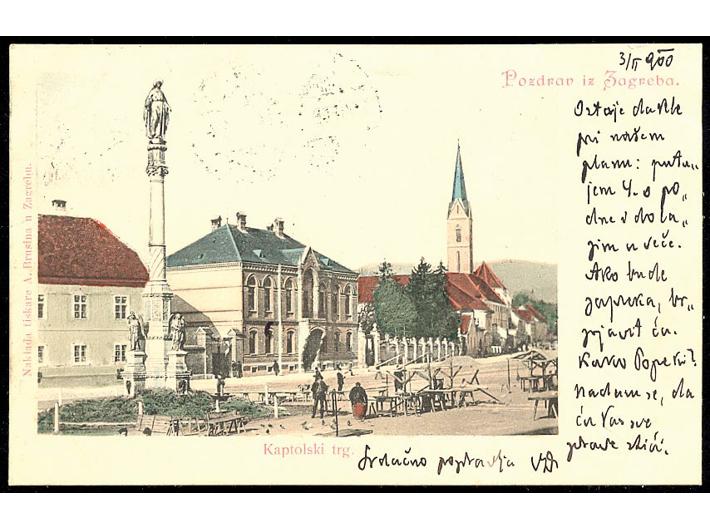 3/II 900
Pozdrav iz Zagreba.
Ostaje dakle
pri našem
planu: putu-
jem 4. o po
dne i dola-
zim u veče.
Ako bude
zapreka, br-
zojavit ću.
Kako Popeki?
Nadam se, da
ću Vas sve
zdrave stići.
Srdačno pozdravlja
Kaptolski trg.
Naklada tiskare A. Brusina u Zagrebu.